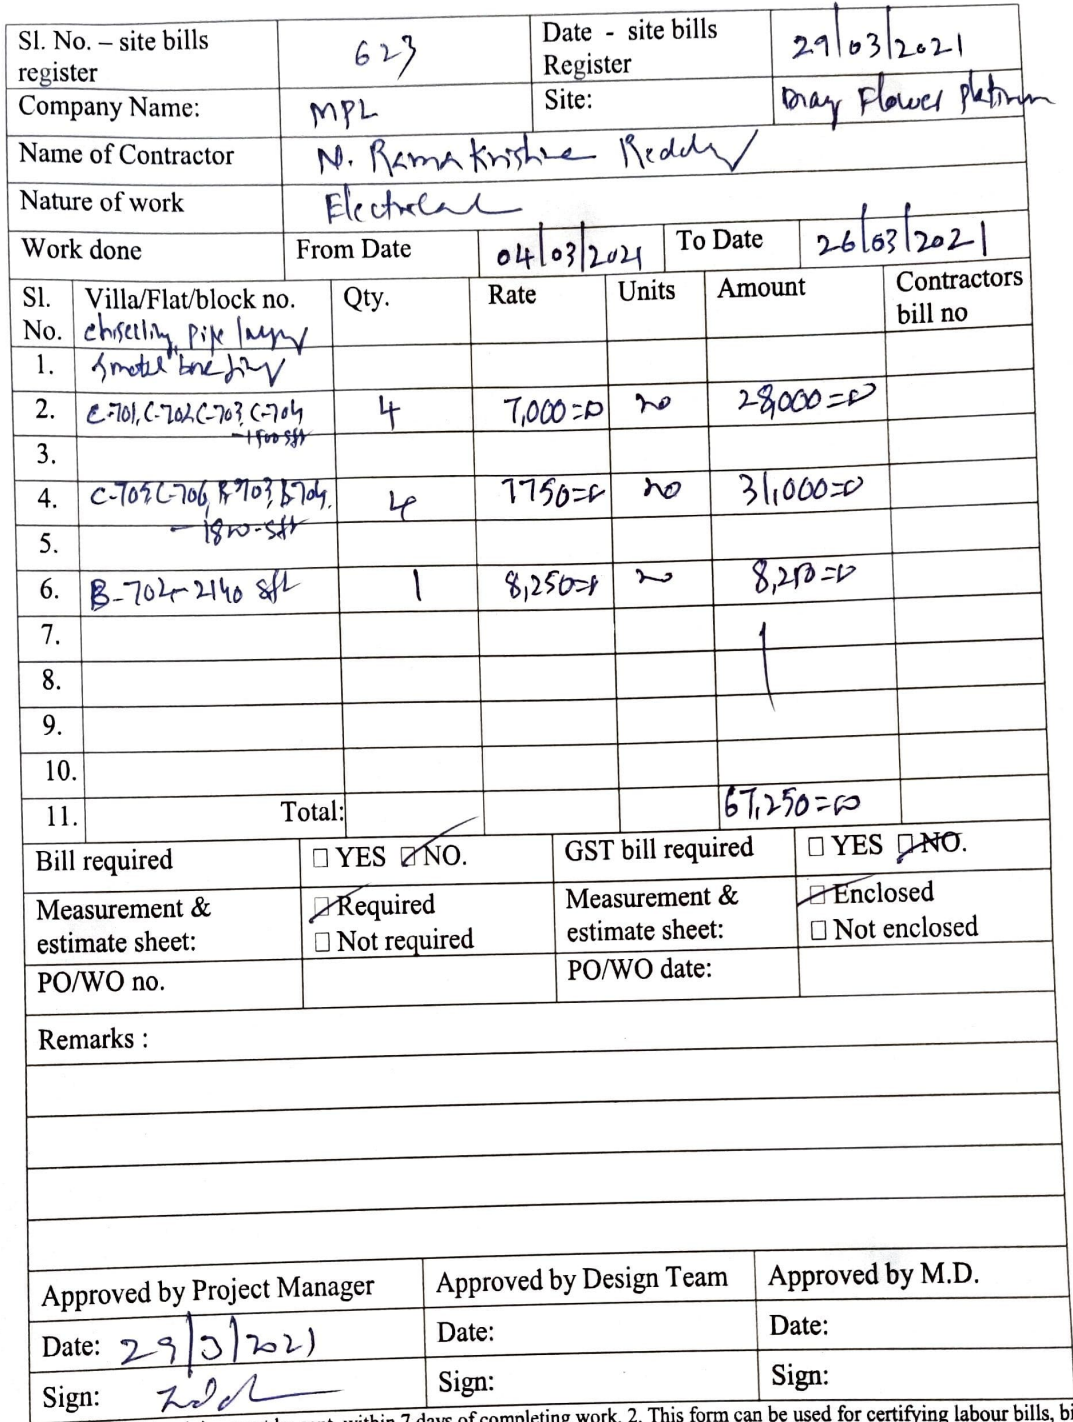 Sl. No. – site bills register 623 Date - site bills Register 29/03/2021
Company Name: MPL Site: May Flower Platinum
Name of Contractor N. Ramakrishna Reddy
Nature of work Electrical
Work done From Date 04/03/2021 To Date 26/03/2021
Sl. No. Villa/Flat/block no. Qty. Rate Units Amount Contractors bill no
chiselling, pipe laying
1. & metal box fixing
2. C-701, C-702 C-703, C-704 4 7,000=00 no 28,000=00
-1500 sft
3.
4. C-705, C-706, B-703, B-704. 4 7750=00 no 31,000=00
-1800-sft
5.
6. B-702-2140 sft 1 8,250=00 no 8,250=00
7.
8.
9.
10.
11. Total: 67,250=00
Bill required YES NO. GST bill required YES NO.
Measurement & estimate sheet: Required Measurement & estimate sheet: Enclosed
Not required Not enclosed
PO/WO no. PO/WO date:
Remarks :
Approved by Project Manager Approved by Design Team Approved by M.D.
Date: 29/3/2021 Date: Date:
Sign: Sign: Sign:
within 7 days of completing work. 2. This form can be used for certifying labour bills,